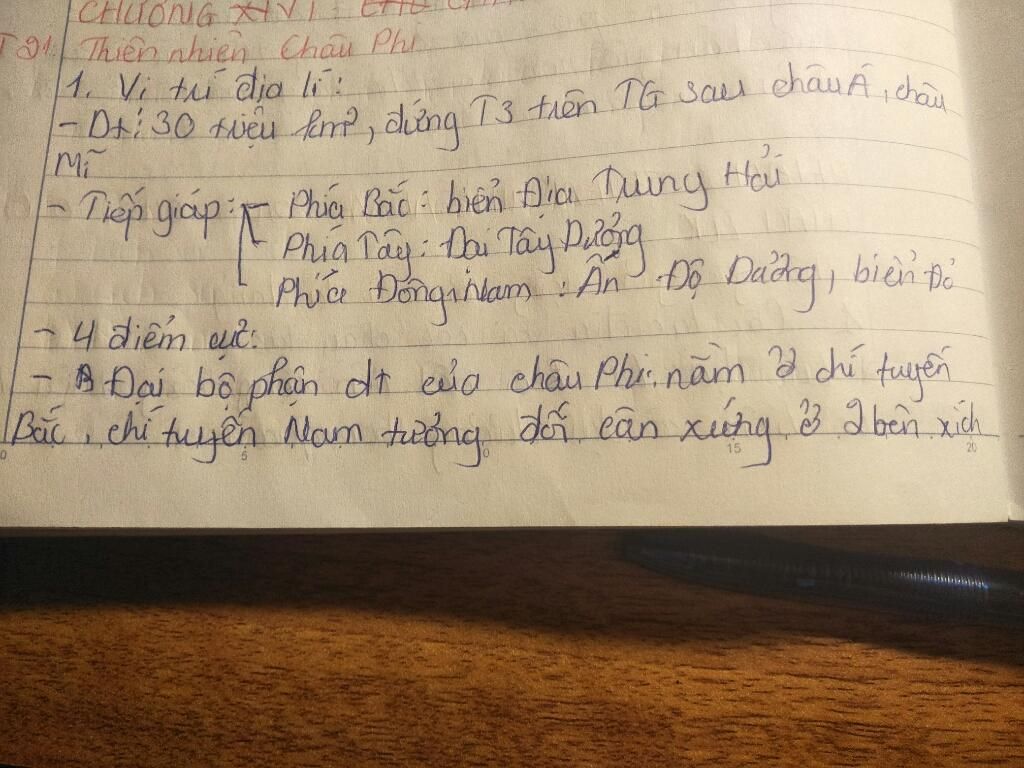 CHƯƠNG XIVI: CHÂU
T21: Thiên nhiên Châu Phi
1. Vị trí địa lí:
- Dt: 30 triệu km², đứng T3 trên TG sau châu Á, châu
Mĩ
- Tiếp giáp: Phía Bắc: biển Địa Trung Hải
Phía Tây: Đại Tây Dương
Phía Đông, Nam: Ấn Độ Dương, biển Đỏ
- 4 điểm cực:
- Đại bộ phận dt của châu Phi nằm ở chí tuyến
Bắc, chí tuyến Nam tương đối cân xứng ở 2 bên xích
0 5 0 15 20